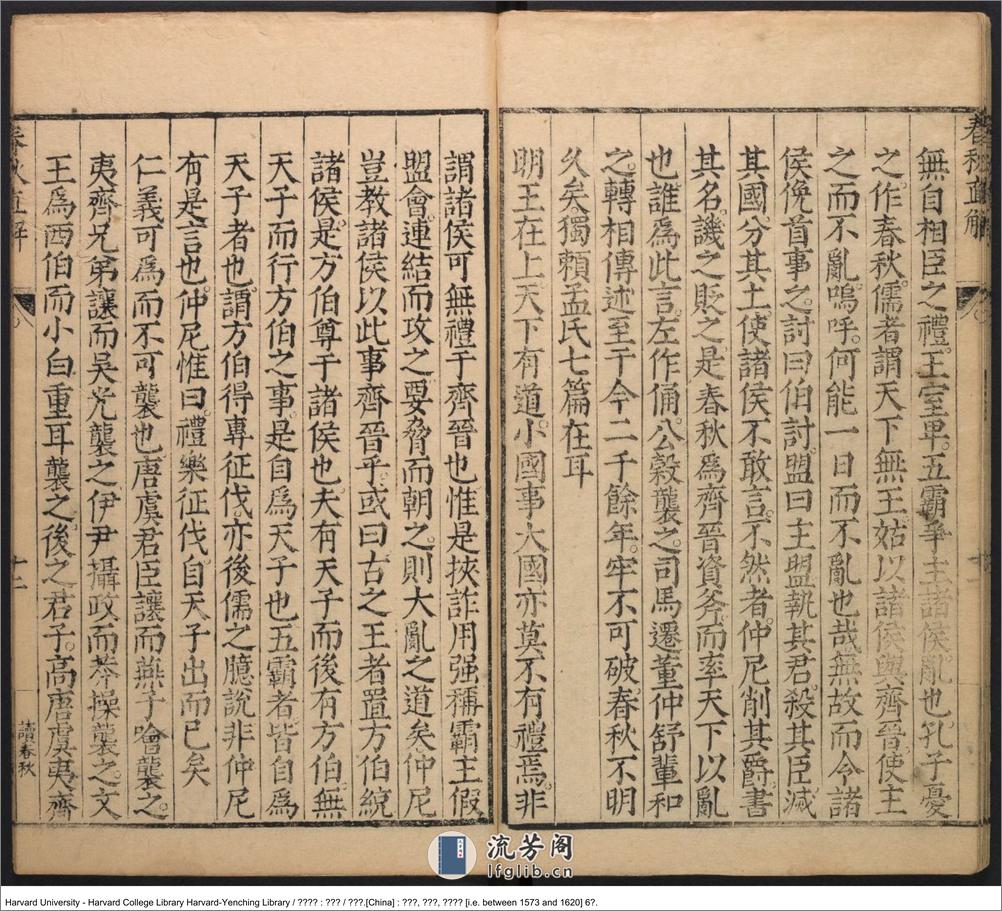 春秋直解
無自相臣之禮王室卑五霸爭主諸侯亂也孔子憂
之作春秋儒者謂天下無王姑以諸侯與齊晉使主
之而不亂嗚呼何能一日而不亂也哉無故而令諸
侯俛首事之討曰伯討盟曰主盟執其君殺其臣滅
其國分其土使諸侯不敢言不然者仲尼削其爵書
其名譏之貶之是春秋為齊晉資斧而率天下以亂
也誰為此言左作俑公穀襲之司馬遷董仲舒輩和
之轉相傳述至于今二千餘年牢不可破春秋不明
久矣獨賴孟氏七篇在耳
明王在上天下有道小國事大國亦莫不有禮焉非
謂諸侯可無禮于齊晉也惟是挾詐用强稱霸主假
盟會連結而攻之要脅而朝之則大亂之道矣仲尼
豈教諸侯以此事齊晉乎或曰古之王者置方伯統
諸侯是方伯尊于諸侯也夫有天子而後有方伯無
天子而行方伯之事是自為天子也五霸者皆自為
天子者也謂方伯得專征伐亦後儒之臆說非仲尼
有是言也仲尼惟曰禮樂征伐自天子出而已矣
仁義可為而不可襲也唐虞君臣讓而燕子噲襲之
夷齊兄弟讓而吳光襲之伊尹攝政而莽操襲之文
王為西伯而小白重耳襲之後之君子高唐虞夷齊
春秋直解
十二
讀春秋
流芳阁
lfglib.cn
Harvard University - Harvard College Library Harvard-Yenching Library / ???? : ??? / ???.[China] : ???, ???, ???? [i.e. between 1573 and 1620] 6?.